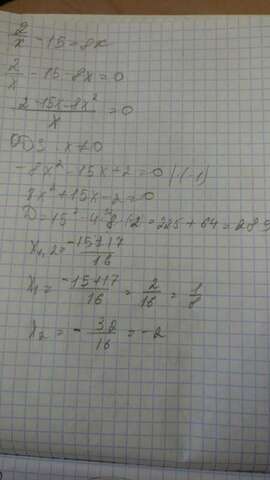 2/x - 15 = 8x
2/x - 15 - 8x = 0
(2 - 15x - 8x²)/x = 0
ОДЗ: x ≠ 0
-8x² - 15x + 2 = 0 | ·(-1)
8x² + 15x - 2 = 0
D = 15² - 4·8·(-2) = 225 + 64 = 289
x₁,₂ = (-15±17)/16
x₁ = (-15+17)/16 = 2/16 = 1/8
x₂ = -32/16 = -2